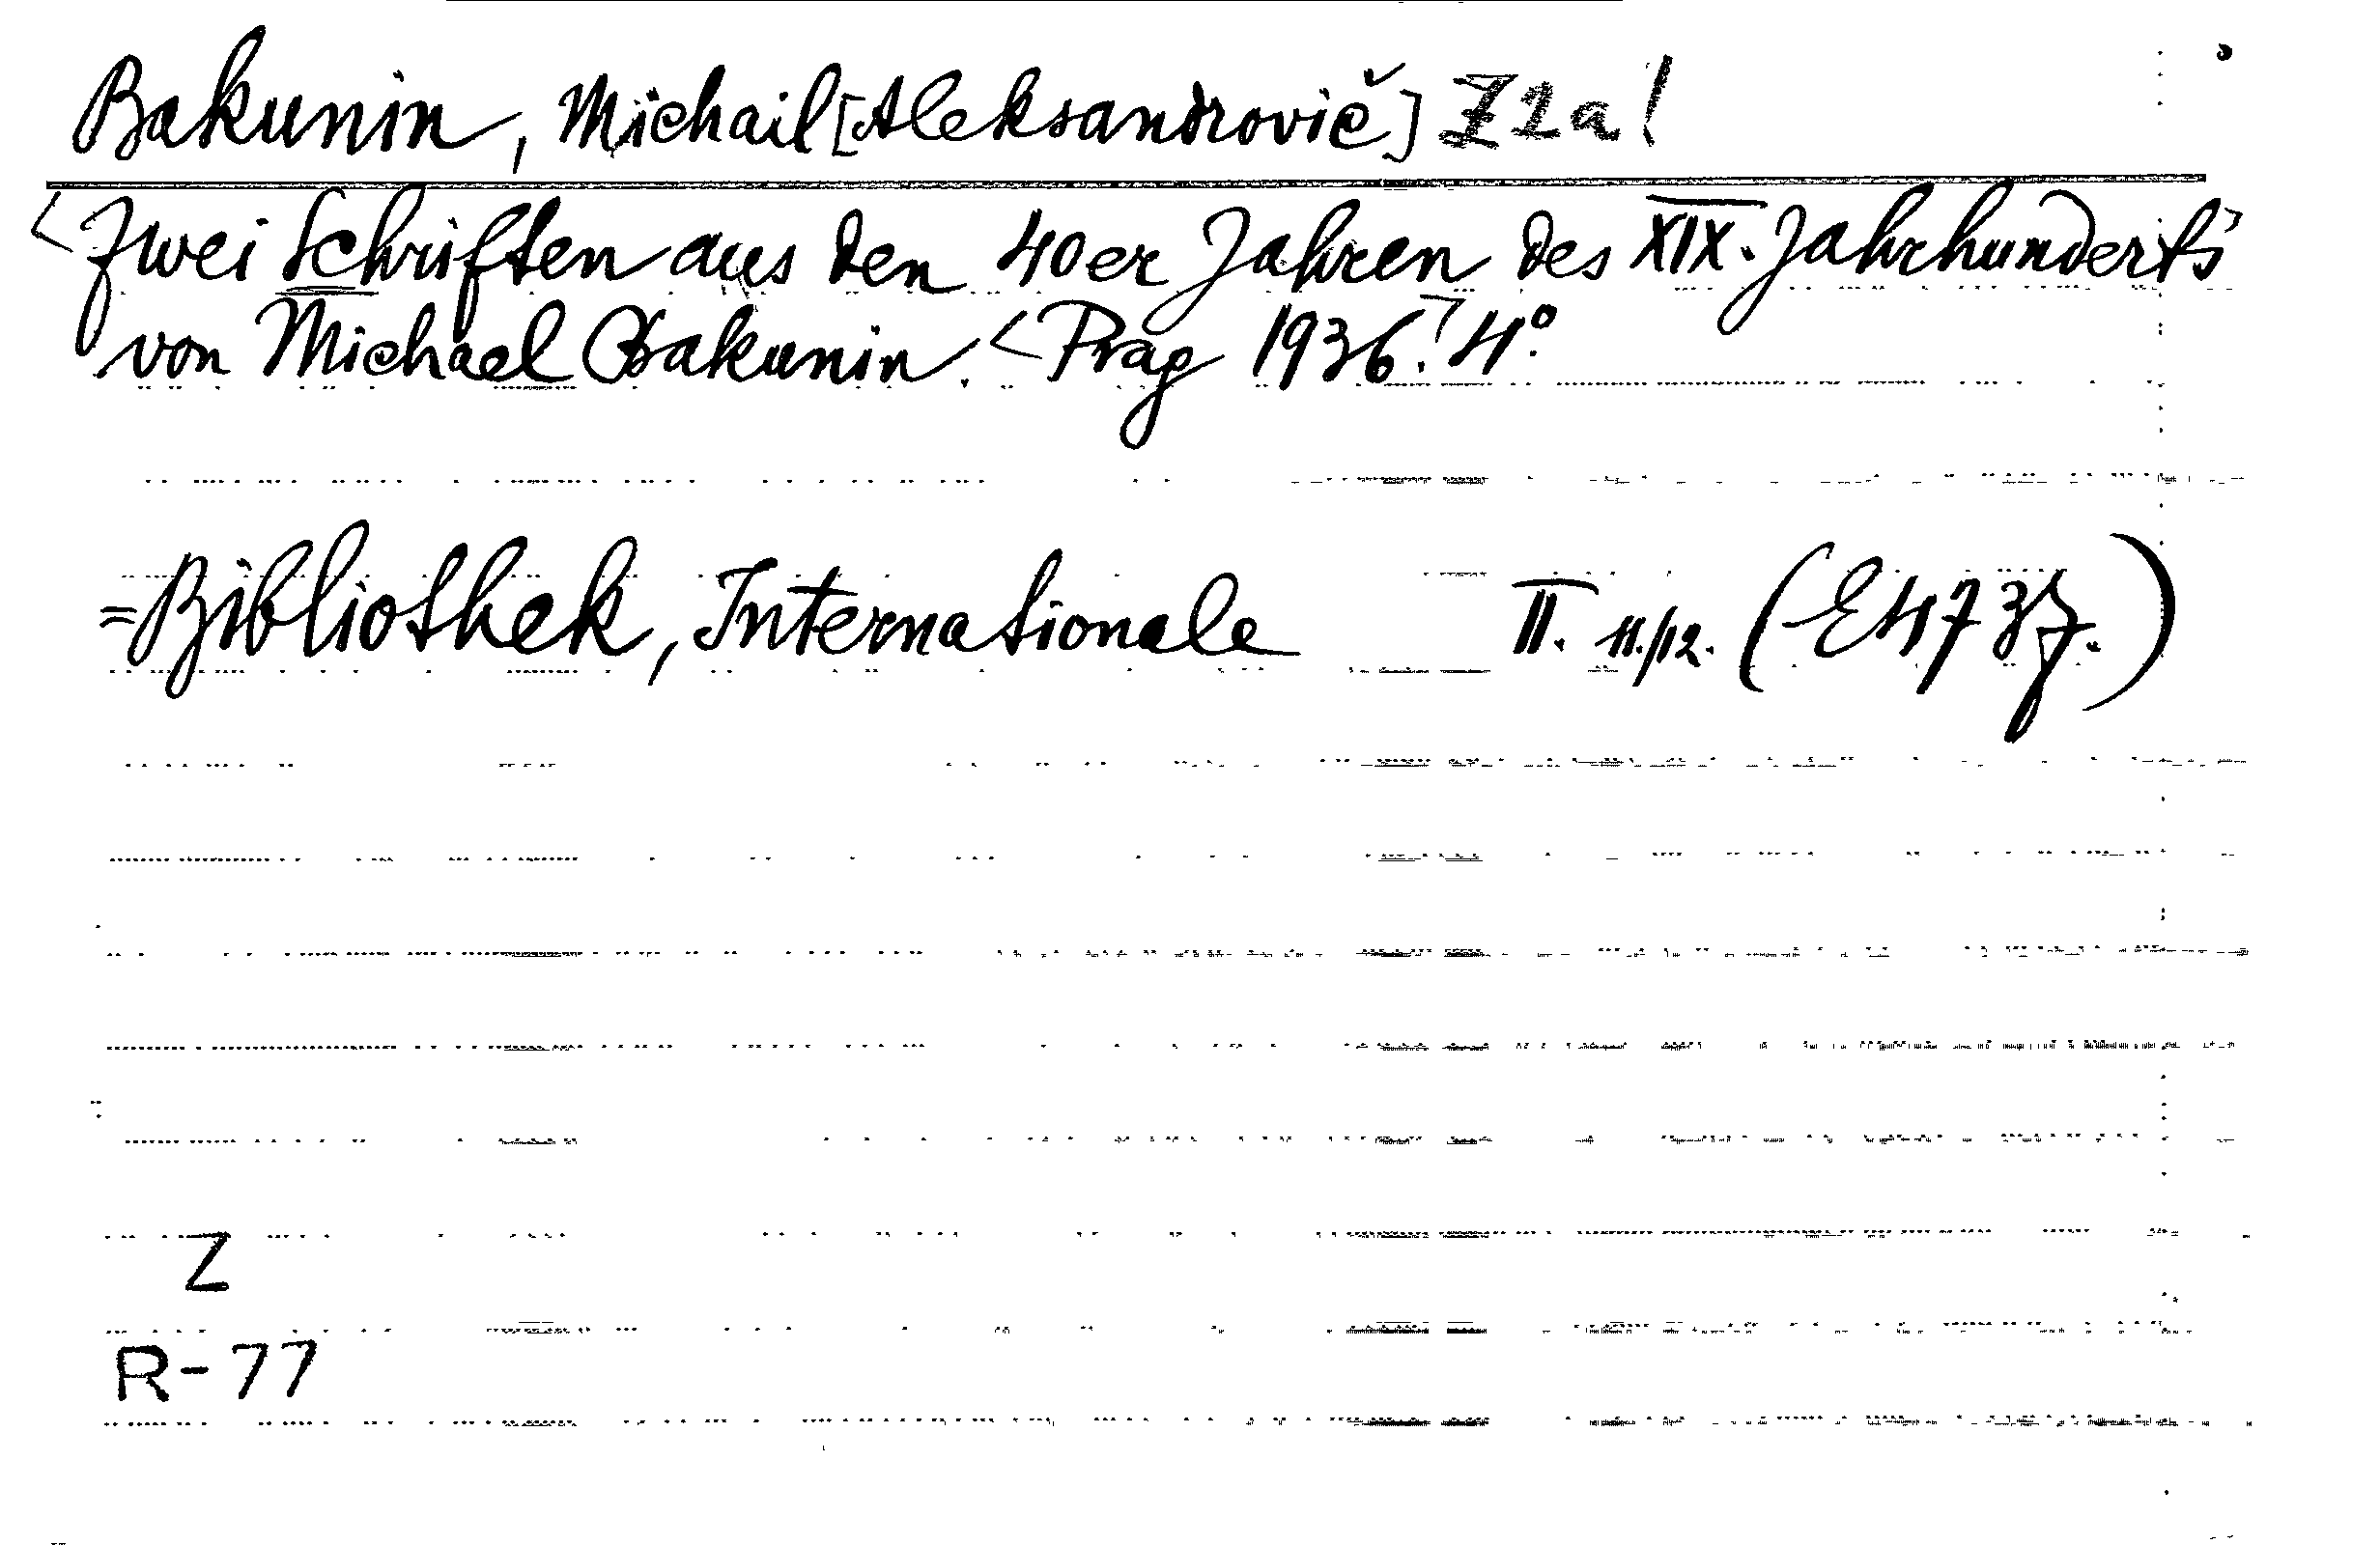 Bakunin, Michail [Aleksandrovič] Z2a/
<Zwei Schriften aus den 40er Jahren des XIX. Jahrhunderts
von Michael Bakunin. <Prag 1936.> 4°.
=Bibliothek, Internationale II. 11./12. (E4737.)
Z
R-77